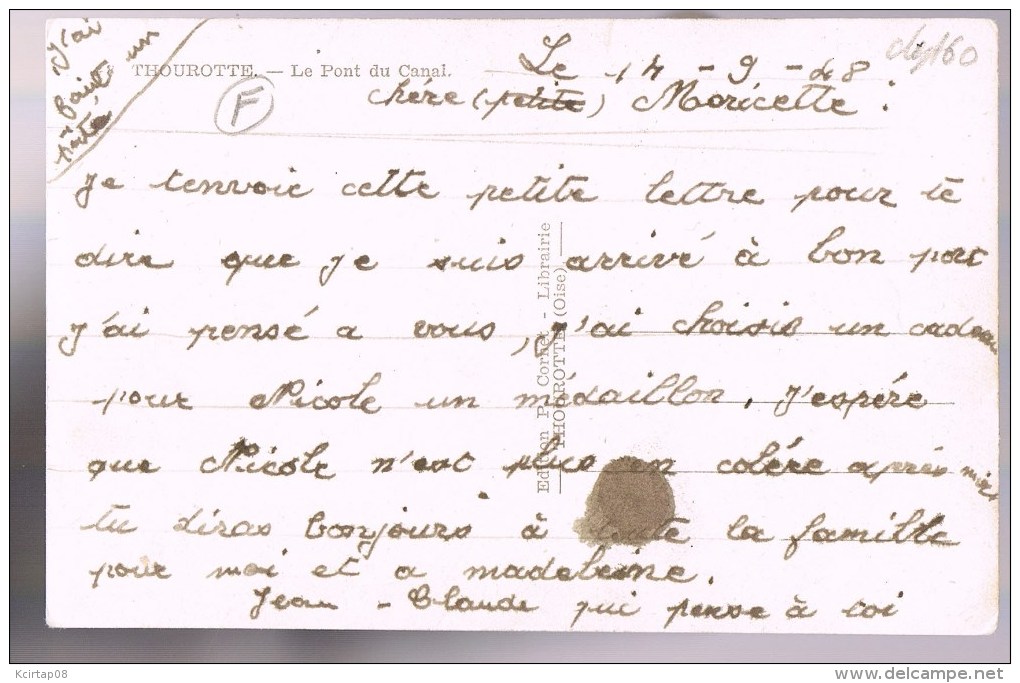 J'ai
fait un
pâté
THOUROTTE. — Le Pont du Canal.
Le 14 - 9 - 48
chére (petite) Moricette :
F
Je tenvoie cette petite lettre pour te
dire que je suis arrivé à bon port
j'ai pensé a vous, j'ai choisis un cadeau
pour Nicole un médaillon. J'espére
que Nicole n'est plus en colére aprés moi
tu diras bonjours à toute la famille
pour moi et a madeleine.
Jean - Claude qui pense à toi
Edition P. Cornet - Librairie
THOUROTTE (Oise)
Kcirtap08
www.delcampe.net